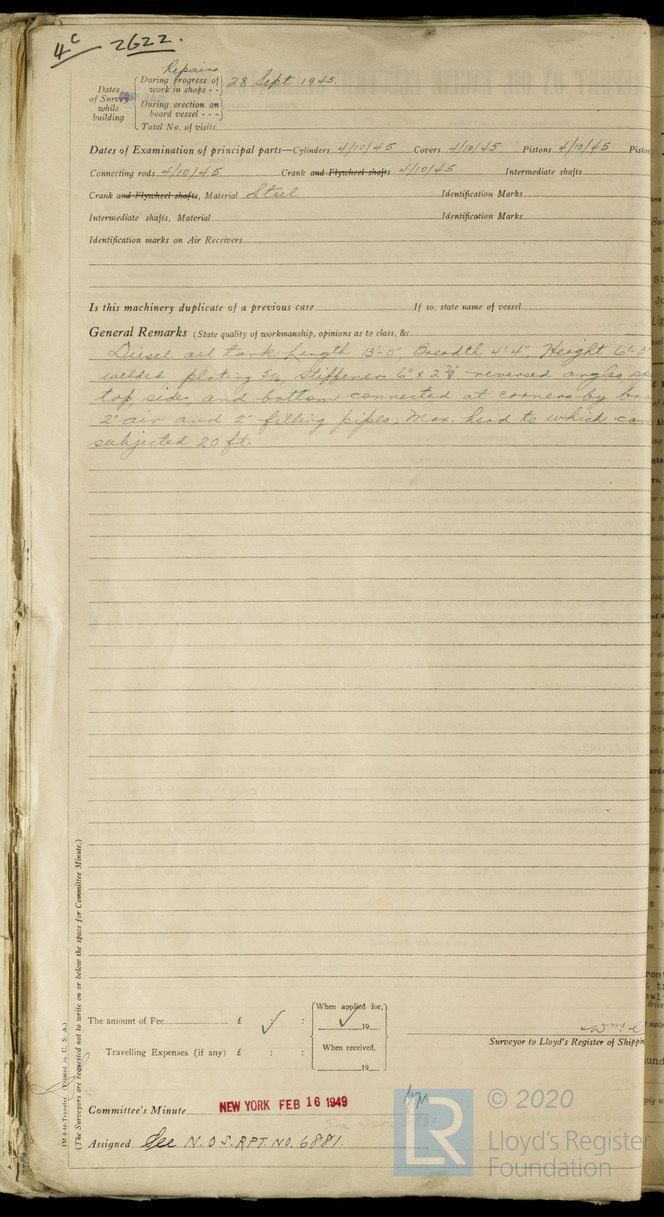 4c 2622.
Repairs
Dates of Survey while building
During progress of work in shops - - 28 Sept 1945
During erection on board vessel - - -
Total No. of visits
Dates of Examination of principal parts—Cylinders 4/10/45 Covers 4/10/45 Pistons 4/10/45 Pisto
Connecting rods 4/10/45 Crank and Flywheel shafts 4/10/45 Intermediate shafts
Crank and Flywheel shafts, Material Steel Identification Marks
Intermediate shafts, Material Identification Marks
Identification marks on Air Receivers
Is this machinery duplicate of a previous case If so, state name of vessel
General Remarks (State quality of workmanship, opinions as to class, &c.
Diesel oil tank Length 13'-0", Breadth 4'-4", Height 6'-3"
welded plating 5/16, Stiffeners 6" x 2 7/8 reversed angles
top, sides, and bottom connected at corners by
2" air and 2" filling pipes; Max. head to which can
subjected 20 ft.
The amount of Fee £ : :
When applied for,
19
Travelling Expenses (if any) £ : :
When received,
19
Surveyor to Lloyd's Register of Shippin
Committee's Minute NEW YORK FEB 16 1949
Assigned See N.O S. RPT. NO. 6881.
1M 8-46 Transfer. (Printed in U. S. A.)
(The Surveyors are requested not to write on or below the space for Committee Minute.)
© 2020
Lloyd's Register
Foundation